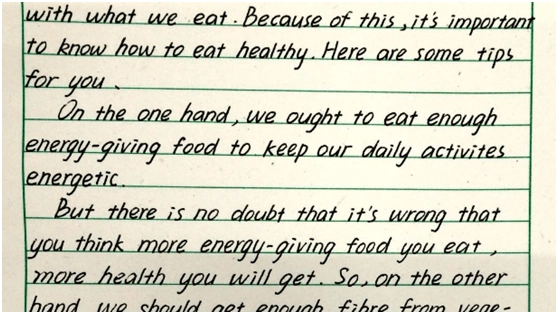 with what we eat. Because of this, it's important
to know how to eat healthy. Here are some tips
for you.
On the one hand, we ought to eat enough
energy-giving food to keep our daily activites
energetic.
But there is no doubt that it's wrong that
you think more energy-giving food you eat,
more health you will get. So, on the other
hand, we should get enough fibre from vege-